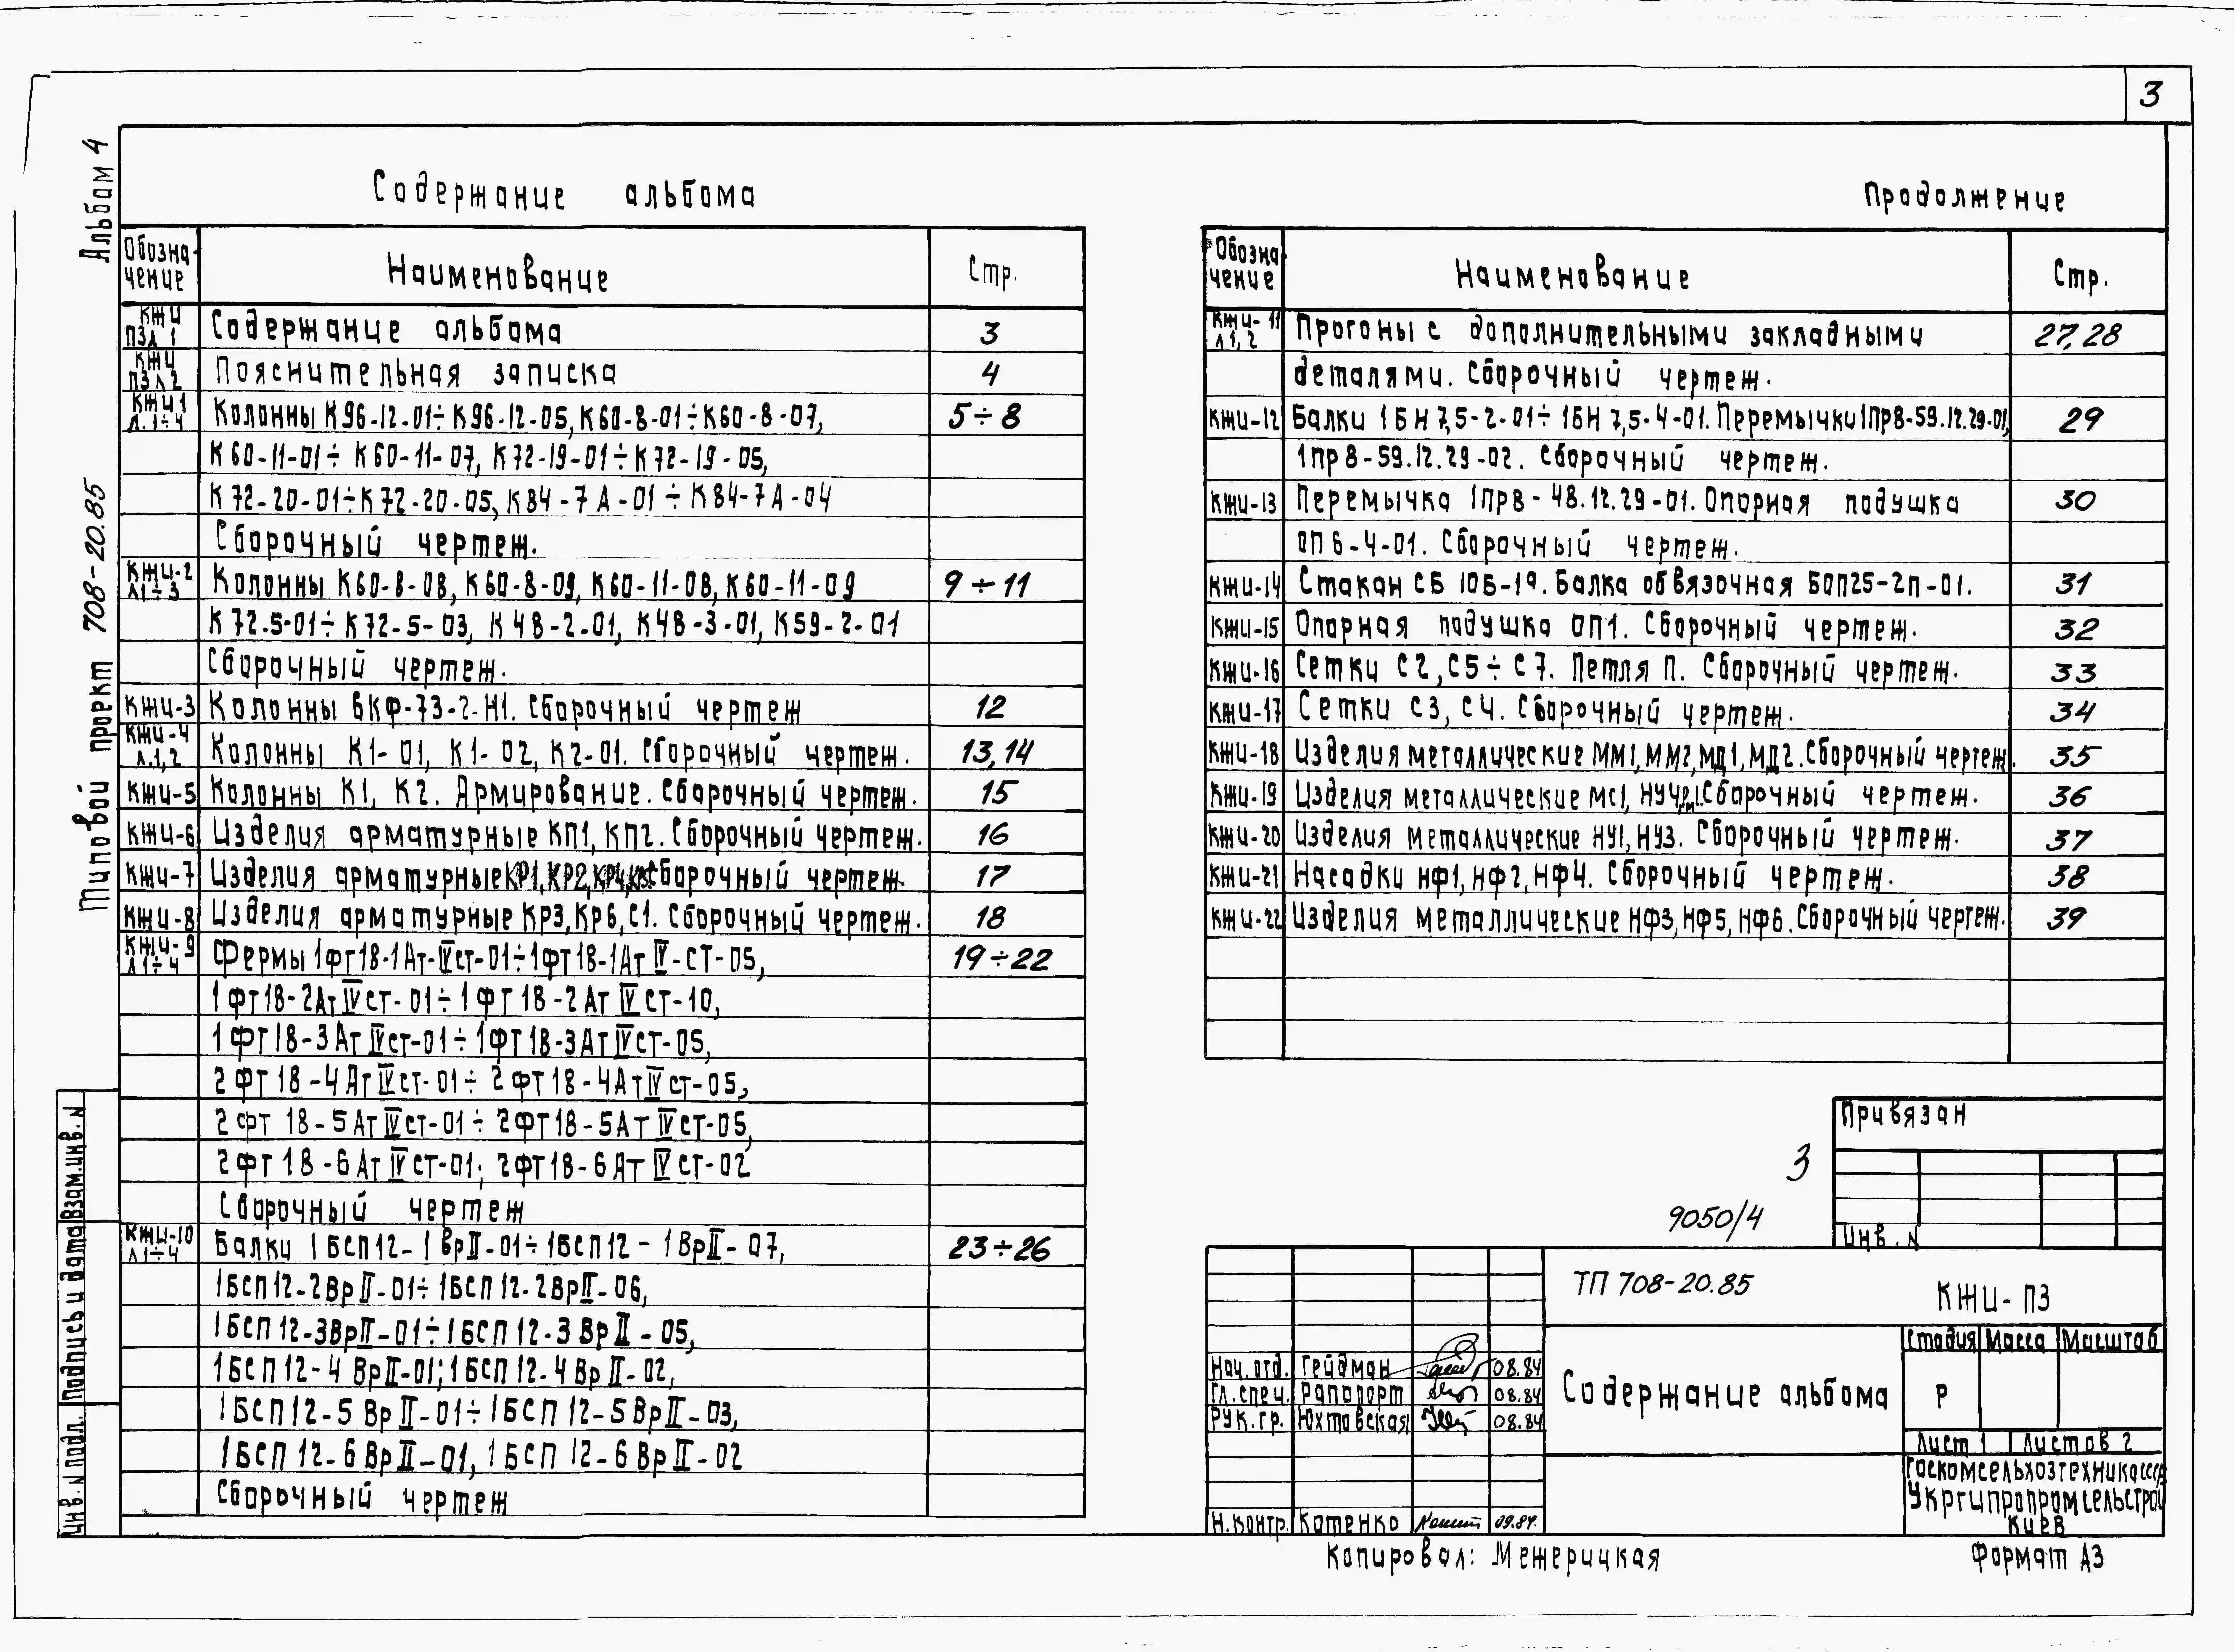 3
Альбом 4
Типовой проект 708-20.85
Содержание альбома
Обозна-
чение
Наименование
Стр.
КЖИ
ПЗ л 1
Содержание альбома
3
КЖИ
ПЗ л 2
Пояснительная записка
4
КЖИ 1
Л. 1÷4
Колонны К96-12-01÷К96-12-05, К60-8-01÷К60-8-07,
5÷8
К60-11-01÷К60-11-07, К72-19-01÷К72-19-05,
К72-20-01÷К72-20-05, К84-7А-01÷К84-7А-04
Сборочный чертеж.
КЖИ-2
Л1÷3
Колонны К60-8-08, К60-8-09, К60-11-08, К60-11-09
9÷11
К72.5-01÷К72-5-03, К48-2-01, К48-3-01, К59-2-01
Сборочный чертеж.
КЖИ-3
Колонны 6КФ-73-2-Н1. Сборочный чертеж
12
КЖИ-4
Л.1,2
Колонны К1-01, К1-02, К2-01. Сборочный чертеж.
13,14
КЖИ-5
Колонны К1, К2. Армирование. Сборочный чертеж.
15
КЖИ-6
Изделия арматурные КП1, КП2. Сборочный чертеж.
16
КЖИ-7
Изделия арматурные КР1, КР2, КР4, Сборочный чертеж.
17
КЖИ-8
Изделия арматурные КР3, КР6, С1. Сборочный чертеж.
18
КЖИ-9
Л1÷4
Фермы 1фт18-1Ат-IVст-01÷1фт18-1Ат IV-СТ-05,
19÷22
1фт18-2Ат IVст-01÷1фт18-2Ат IVст-10,
1фт18-3Ат IVст-01÷1фт18-3Ат IVст-05,
2фт18-4Ат IVст-01÷2фт18-4Ат IVст-05,
2фт18-5Ат IVст-01÷2фт18-5Ат IVст-05,
2фт18-6Ат IVст-01; 2фт18-6Ат IVст-02
Сборочный чертеж
КЖИ-10
Л1÷4
Балки 1БСП12-1ВрII-01÷1БСП12-1ВрII-07,
23÷26
1БСП12-2ВрII-01÷1БСП12-2ВрII-06,
1БСП12-3ВрII-01÷1БСП12-3ВрII-05,
1БСП12-4ВрII-01; 1БСП12-4ВрII-02,
1БСП12-5ВрII-01÷1БСП12-5ВрII-03,
1БСП12-6ВрII-01, 1БСП12-6ВрII-02
Сборочный чертеж
Продолжение
Обозна-
чение
Наименование
Стр.
КЖИ-11
Л1,2
Прогоны с дополнительными закладными
27,28
деталями. Сборочный чертеж.
КЖИ-12
Балки 1БН7,5-2-01÷1БН7,5-4-01. Перемычки 1Пр8-59.12.29-01,
29
1пр8-59.12.29-02. Сборочный чертеж.
КЖИ-13
Перемычка 1пр8-48.12.29-01. Опорная подушка
30
ОП6-4-01. Сборочный чертеж.
КЖИ-14
Стакан СБ 10Б-19. Балка обвязочная БОП25-2п-01.
31
КЖИ-15
Опорная подушка ОП1. Сборочный чертеж.
32
КЖИ-16
Сетки С2, С5÷С7. Петля П. Сборочный чертеж.
33
КЖИ-17
Сетки С3, С4. Сборочный чертеж.
34
КЖИ-18
Изделия металлические ММ1, ММ2, МД1, МД2. Сборочный чертеж.
35
КЖИ-19
Изделия металлические МС1, Сборочный чертеж.
36
КЖИ-20
Изделия металлические НУ1, НУ3. Сборочный чертеж.
37
КЖИ-21
Насадки НФ1, НФ2, НФ4. Сборочный чертеж.
38
КЖИ-22
Изделия металлические НФ3, НФ5, НФ6. Сборочный чертеж.
39
Привязан
Инв. N
3
9050/4
ТП 708-20.85
КЖИ-ПЗ
Содержание альбома
Стадия Масса Масштаб
Р
Лист 1 Листов 2
Госкомсельхозтехника СССР
Укргипропромсельстрой
Киев
Нач. отд. Гейдман 08.84
Гл. спец. Рапопорт 08.84
Рук. гр. Юхтовская 08.84
Н. контр. Котенко 09.84.
Копировал: Межерицкая
Формат А3
Инв. N подл. Подпись и дата Взам. инв. N